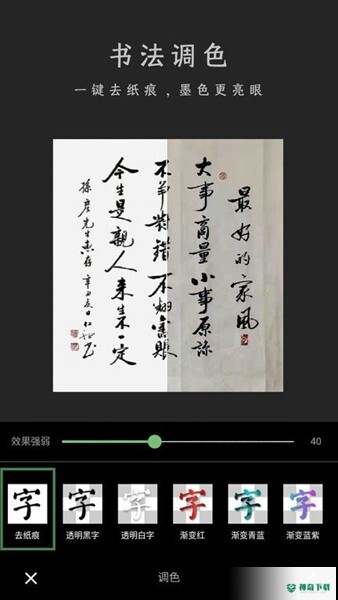 书法调色
一键去纸痕，墨色更亮眼
最好的家风
大事商量小事原谅
不争對错不翻舊賬
今生是親人来生不一定
先生惠存辛丑
效果强弱
40
字
字
字
字
字
字
去纸痕
透明黑字
透明白字
渐变红
渐变青蓝
渐变蓝紫
调色
神奇下载